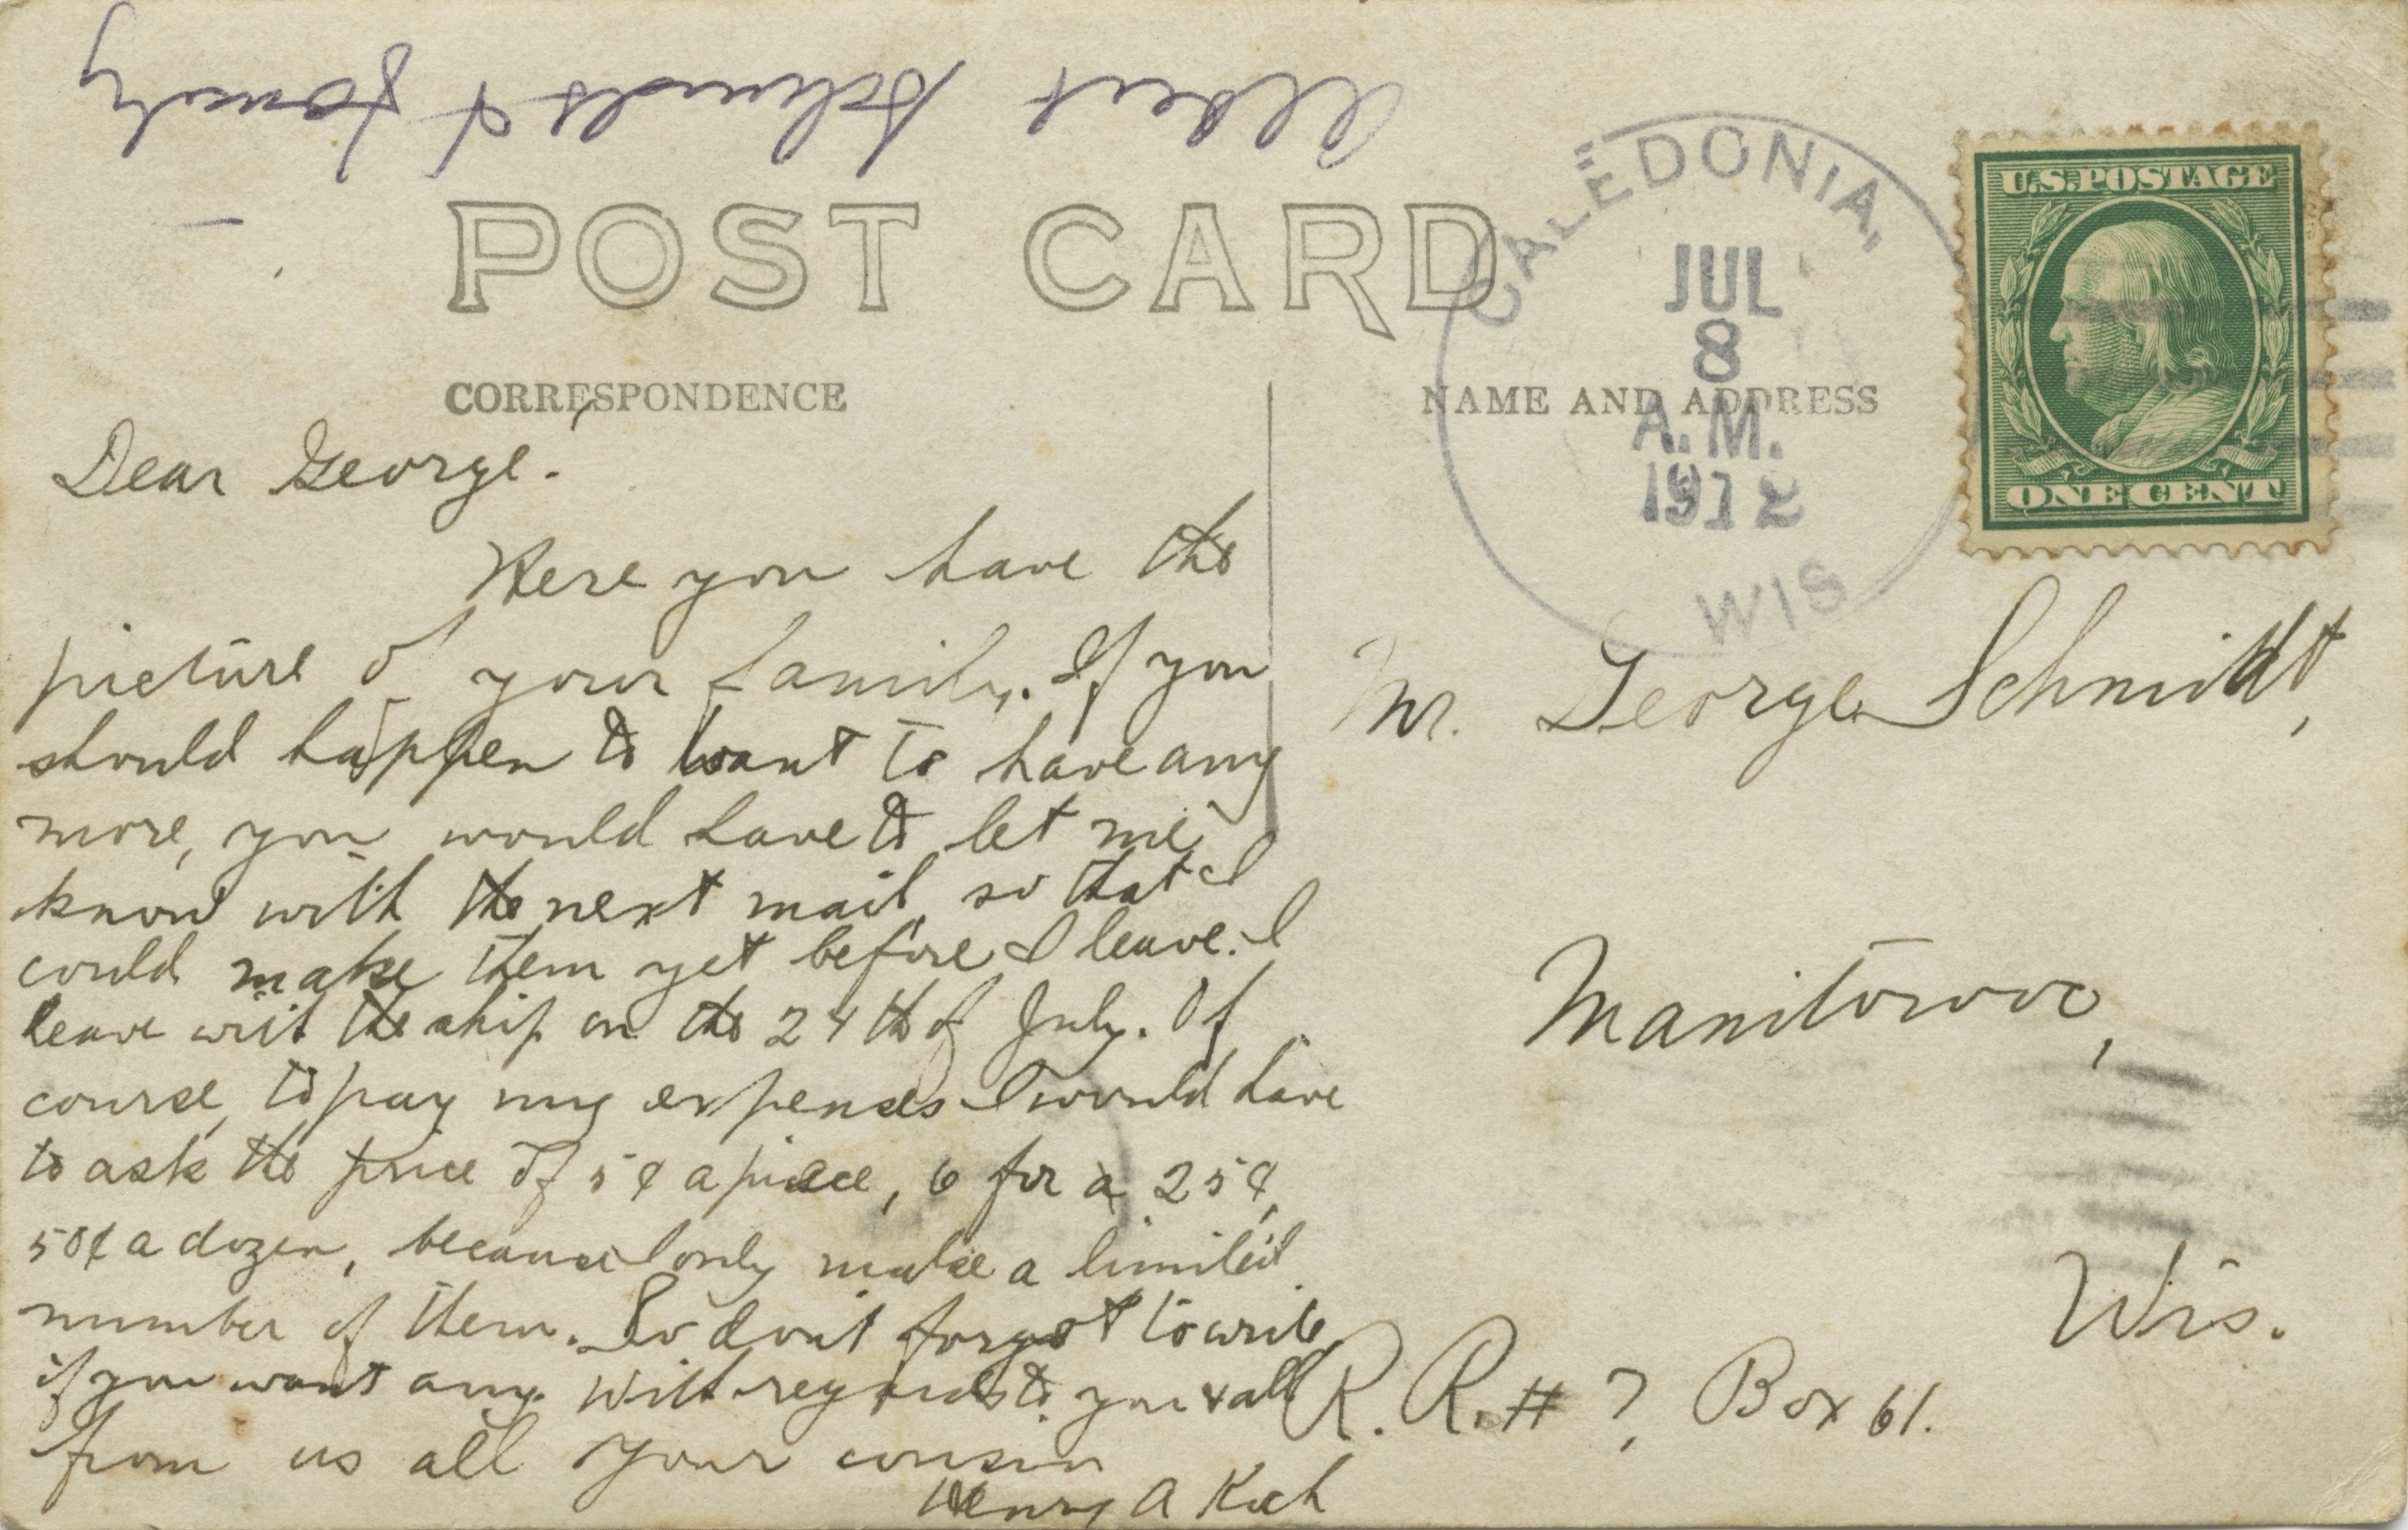 Albert Schmidt & family
POST CARD
CORRESPONDENCE
Dear George.
Here you have the
picture of your family. If you
should happen to want to have any
more, you would have to let me
know with the next mail, so that I
could make them yet before I leave. I
leave wit the ship on the 24th of July. Of
course, to pay my expenses I would have
to ask the price of 5¢ apiece, 6 for a 25¢,
50¢ a dozen, because I only make a limited
number of them. So don't forgot to write
if you want any. With regards to you & all
from us all your cousin
Henry A Koch
CALEDONIA,
JUL
8
A.M.
1912
WIS
U.S. POSTAGE
ONE CENT
NAME AND ADDRESS
Mr. George Schmidt,
Manitowoc,
Wis.
R. R. # 7, Box 61.